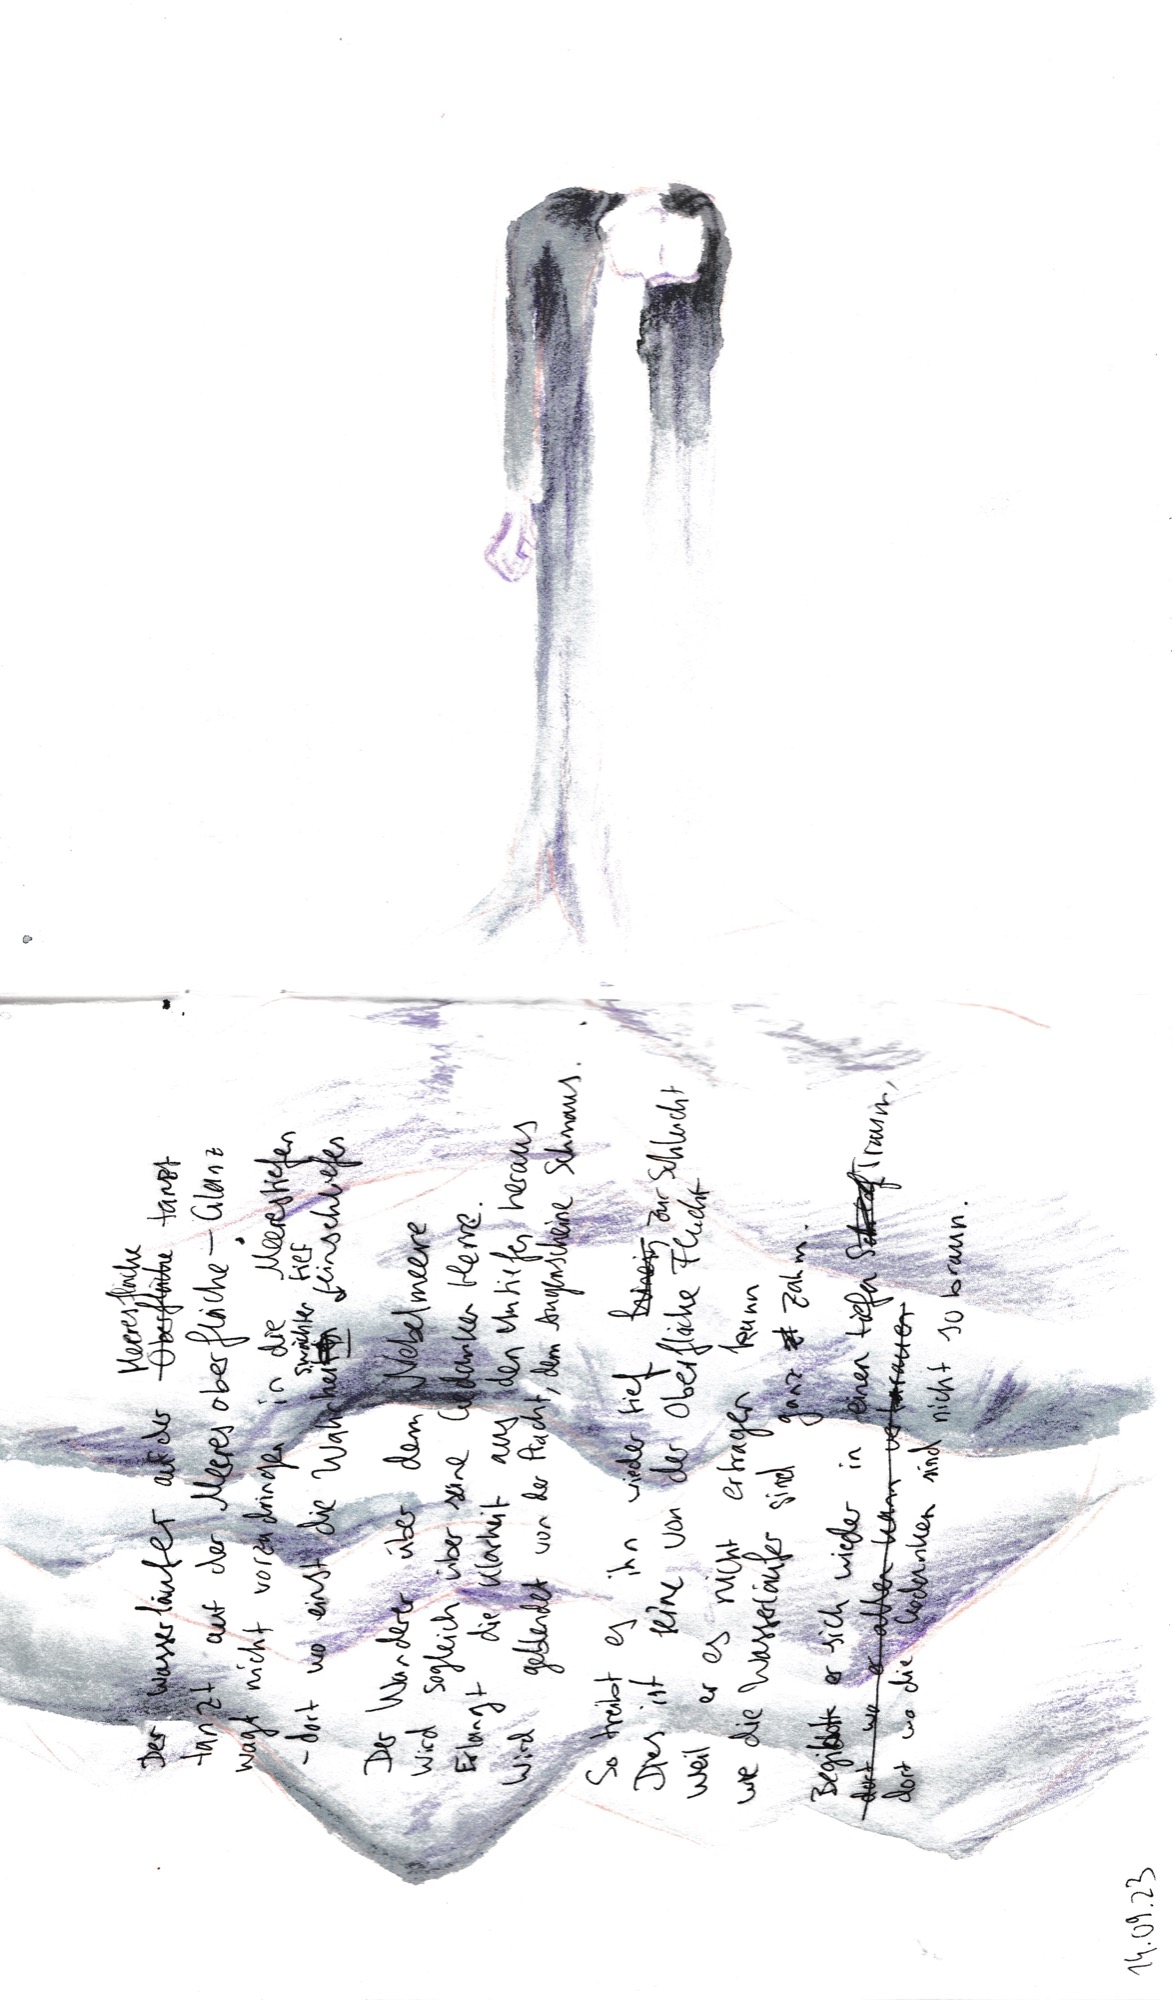 Meeresfläche
Der Wasserläufer auf der Oberfläche tanzt
tanzt auf der Meeresoberfläche – Glanz
wagt nicht vorzudringen in die Meerestiefen
tief
– dort wo einst die Wahrheiten schliefen
Der Wanderer über dem Nebelmeere
Wird sogleich über seine Gedanken Herre.
Erlangt die Klarheit aus den Untiefen heraus
Wird geblendet von der Pracht, dem Augenscheine Schmaus.
So treibt es ihn wieder tief hinein zur Schlucht
Dies ist keine von der Oberfläche Flucht
Weil er es nicht ertragen kann
wie die Wasserläufer sind ganz zahm.
Begibt er sich wieder in einen tiefen Schlaf Traum,
dort wo er allen kann vertrauen
dort wo die Gedanken sind nicht so braun.
14.09.23